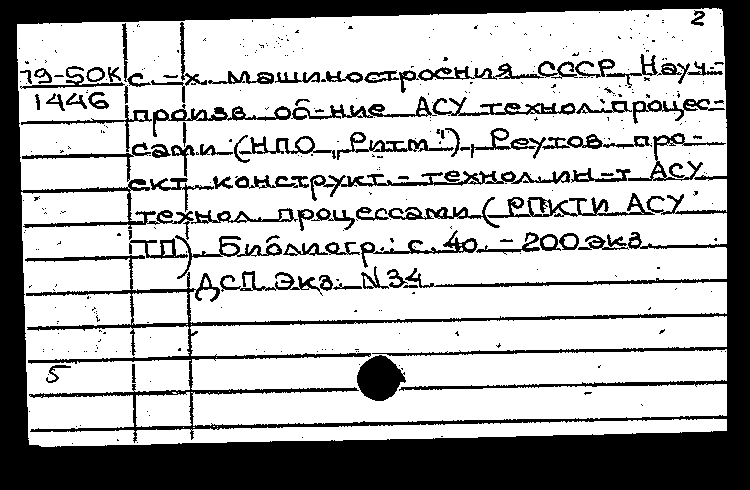 2
79-50K с.-х. машиностроения СССР, Науч.-
1446 произв. об-ние АСУ технол. процес-
сами (НПО „Ритм"), Реутов. про-
ект. конструкт.-технол. ин-т АСУ
технол. процессами (РПКТИ АСУ
ТП). Библиогр.: с. 40. - 200 экз.
ДСП. Экз. N 34.
5